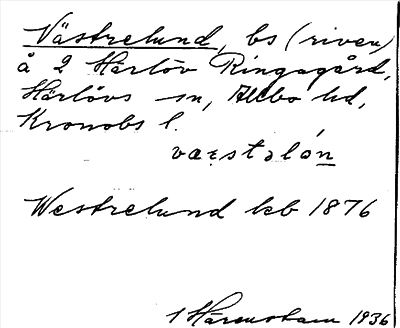 Västrelund, bs (riven)
å 2 Härlöv Ringagård,
Härlövs sn, Allbo hd,
Kronobs l.
væstəlón
Westrelund kb 1876
1936